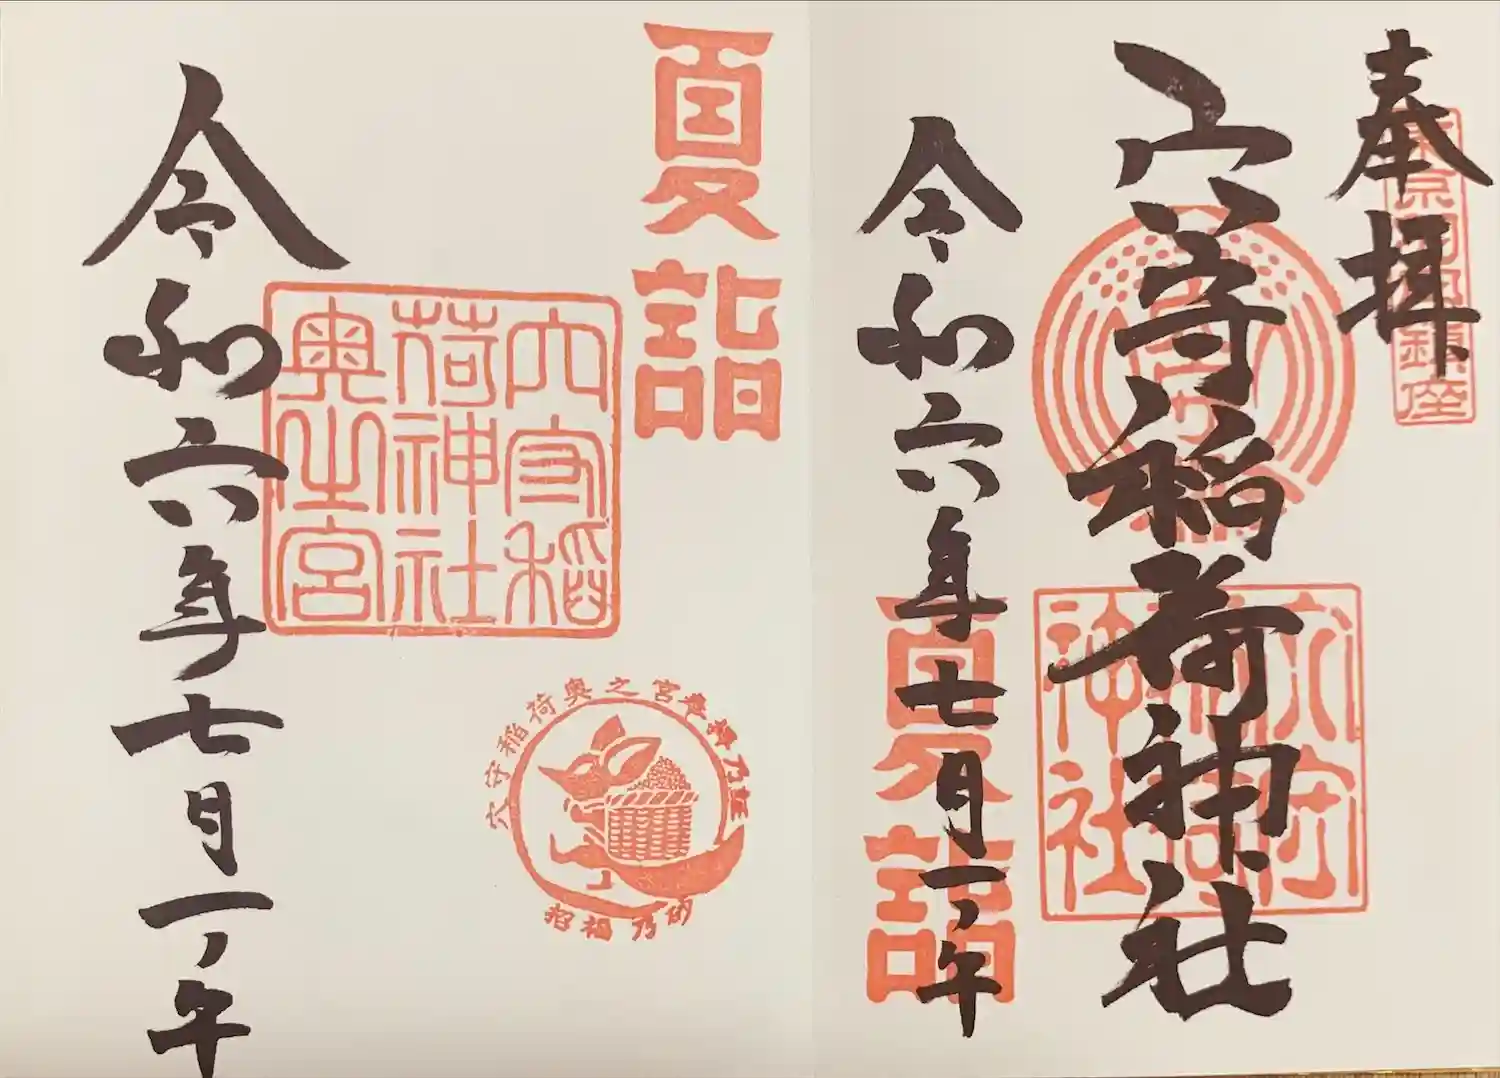 奉拝
東京羽田鎮座
穴守稲荷神社
穴守
稲荷
神社
令和六年七月一ノ午
夏詣
夏詣
穴守稲
荷神社
奥之宮
穴守稲荷奥之宮
招福乃砂
令和六年七月一ノ午